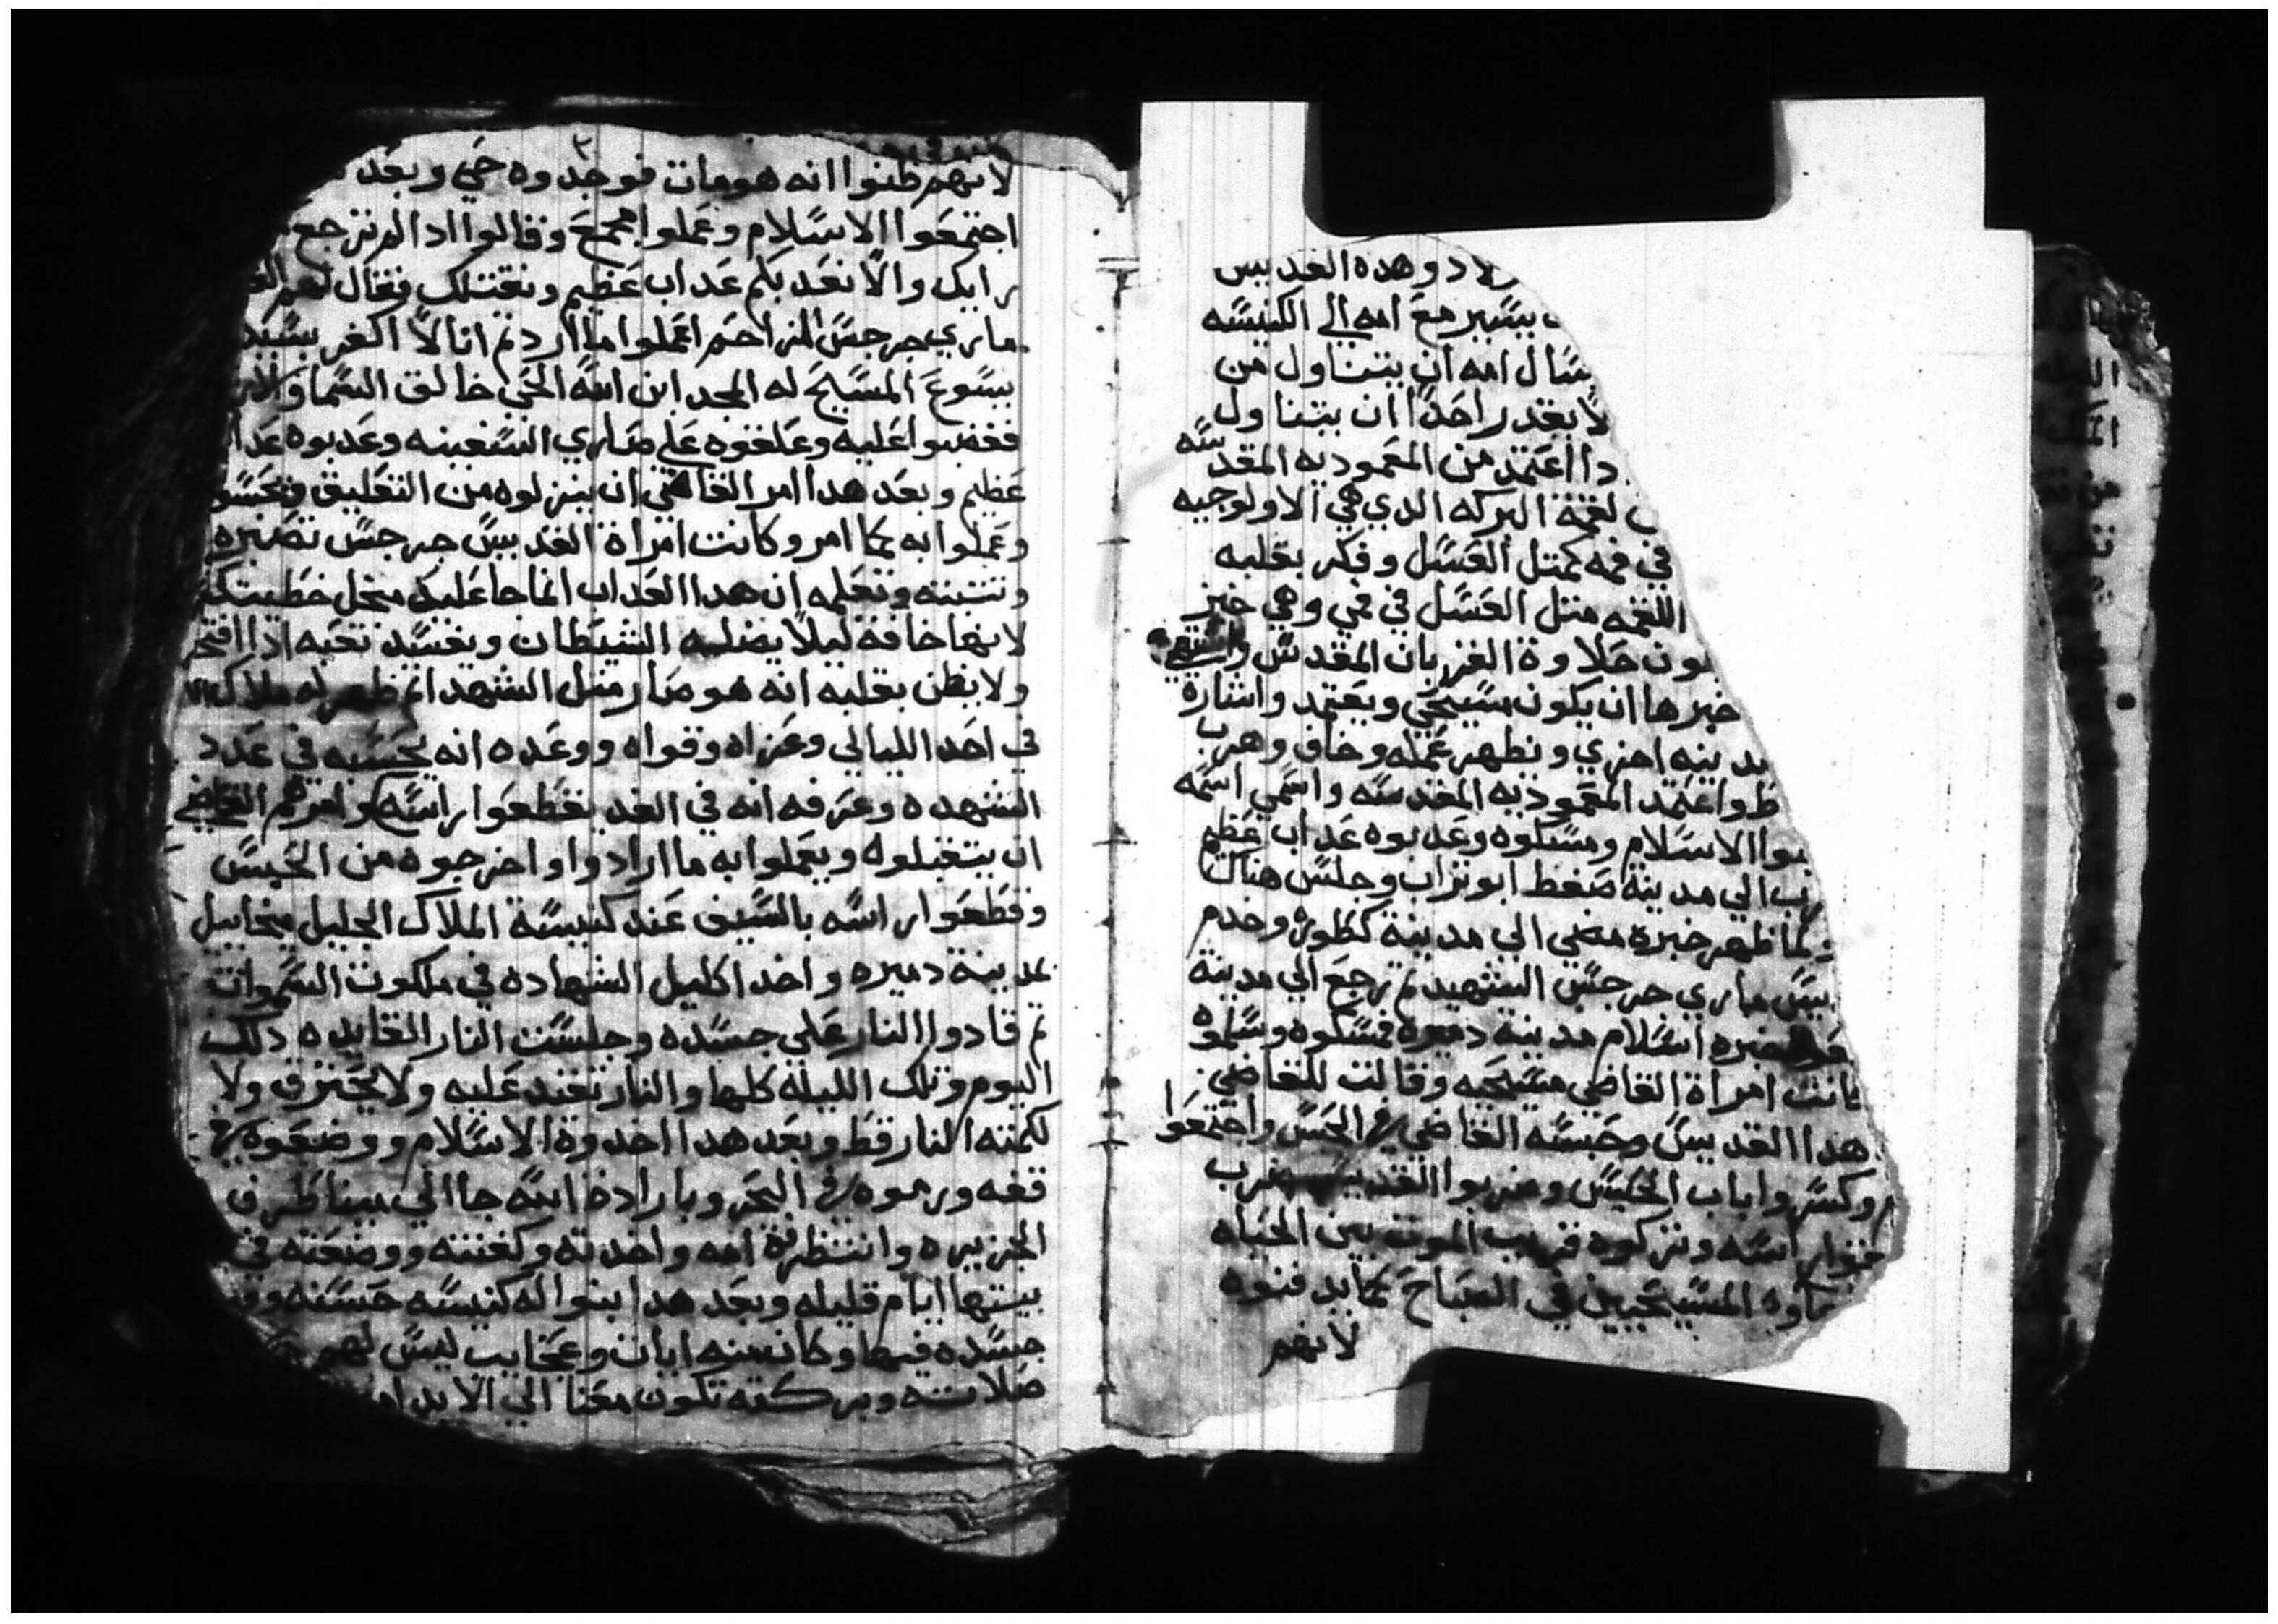 ولاد وهده القديس
يسير مع امه الي الكنيسه
يسال امه ان يتناول من
لا يقدر احدا ان يتناول
دا اعتمد من المعموديه المقدسه
لقمة البركه الدي هي الاولوجيه
في فمه كمتل العسل وفكر بقلبه
اللقمه متل العسل في فمي وهي خبز
حلاوة القربان المقدس
خبرها ان يكون مسيحي ويعتمد واشارة
مدينه اخري ونطهر عمله وخاف وهرب
واعتمد المعموديه المقدسه واسمي اسمه
الاسلام ومسكوه وعدبوه عداب عظيم
الي مدينة صفط ابو تراب وجلس هناك
لما ظهر خبره مضي الي مدينة وخدم
ماري جرجس الشهيد تم رجع الي مدينة
خبره اسلام مدينة دميره فمسكوه وسلموه
كانت امراة القاضي مسيحيه وقالت للقاضي
هدا القديس وحبسه القاضي في الحبس واجتمعوا
وكسروا باب الحبيس وضربوا القديس ضرب
راسه وتركوه قريب الموت بين الحياه
المسيحيين في الصباح كما يدفنوه
لانهم
٣
لانهم ظنوا انه هو مات فوجدوه حي وبعد
اجتمعوا الاسلام وعملوا مجمع وقالوا ادا لم ترجع
رايك والا نعدبكم عداب عظيم ونقتلك فقال لهم
ماري جرجس المزاحم اعملوا ما اردتم انا لا اكفر بسيد
يسوع المسيح له المجد ابن الله الحي خالق السما والارض
فغضبوا عليه وعلقوه علي صاري السفينه وعدبوه عداب
عظيم وبعد هدا امر القاضي ان ينزلوه من التعليق
وعملوا به كما امر وكانت امراة القديس جرجس تصبره
وتتبته وتعلمه ان هدا العداب انما جا عليك
لانها خافة ليلا يضلبه الشيطان ويفسد تعبه ادا افتخر
ولا يظن بقلبه انه هو صار متل الشهدا تم ظهر له ملاك
في احد الليالي وعزاه وقواه ووعده انه يحسبه في عدد
الشهده وعرفه انه في الغد يقطعوا راسه وامرهم القاضي
ان يتقبلوه ويعملوا به ما ارادوا واخرجوه من الحبس
وقطعوا راسه بالسيف عند كنيسة الملاك الجليل ميخاييل
بمدينة دميره واخد اكليل الشهاده في ملكوت السموات
تم قادوا النار علي جسده وجلست النار القايده دلك
اليوم وتلك الليلة كلها والنار تقند عليه ولا يحترق ولا
لكمته النار قط وبعد هدا اخدوة الاسلام ووضعوه في
قفه ورموه في البحر وبارادة الله جا الي مينا طرف
الجزيره وانتظرته امه واخدته وكفنته ووضعته في
بيتها ايام قليله وبعد هدا بنوا له كنيسه حسنه
جسده فيها وكان منه ايات وعجايب ليس لهم
صلاته وبركته تكون معنا الي الابد امين